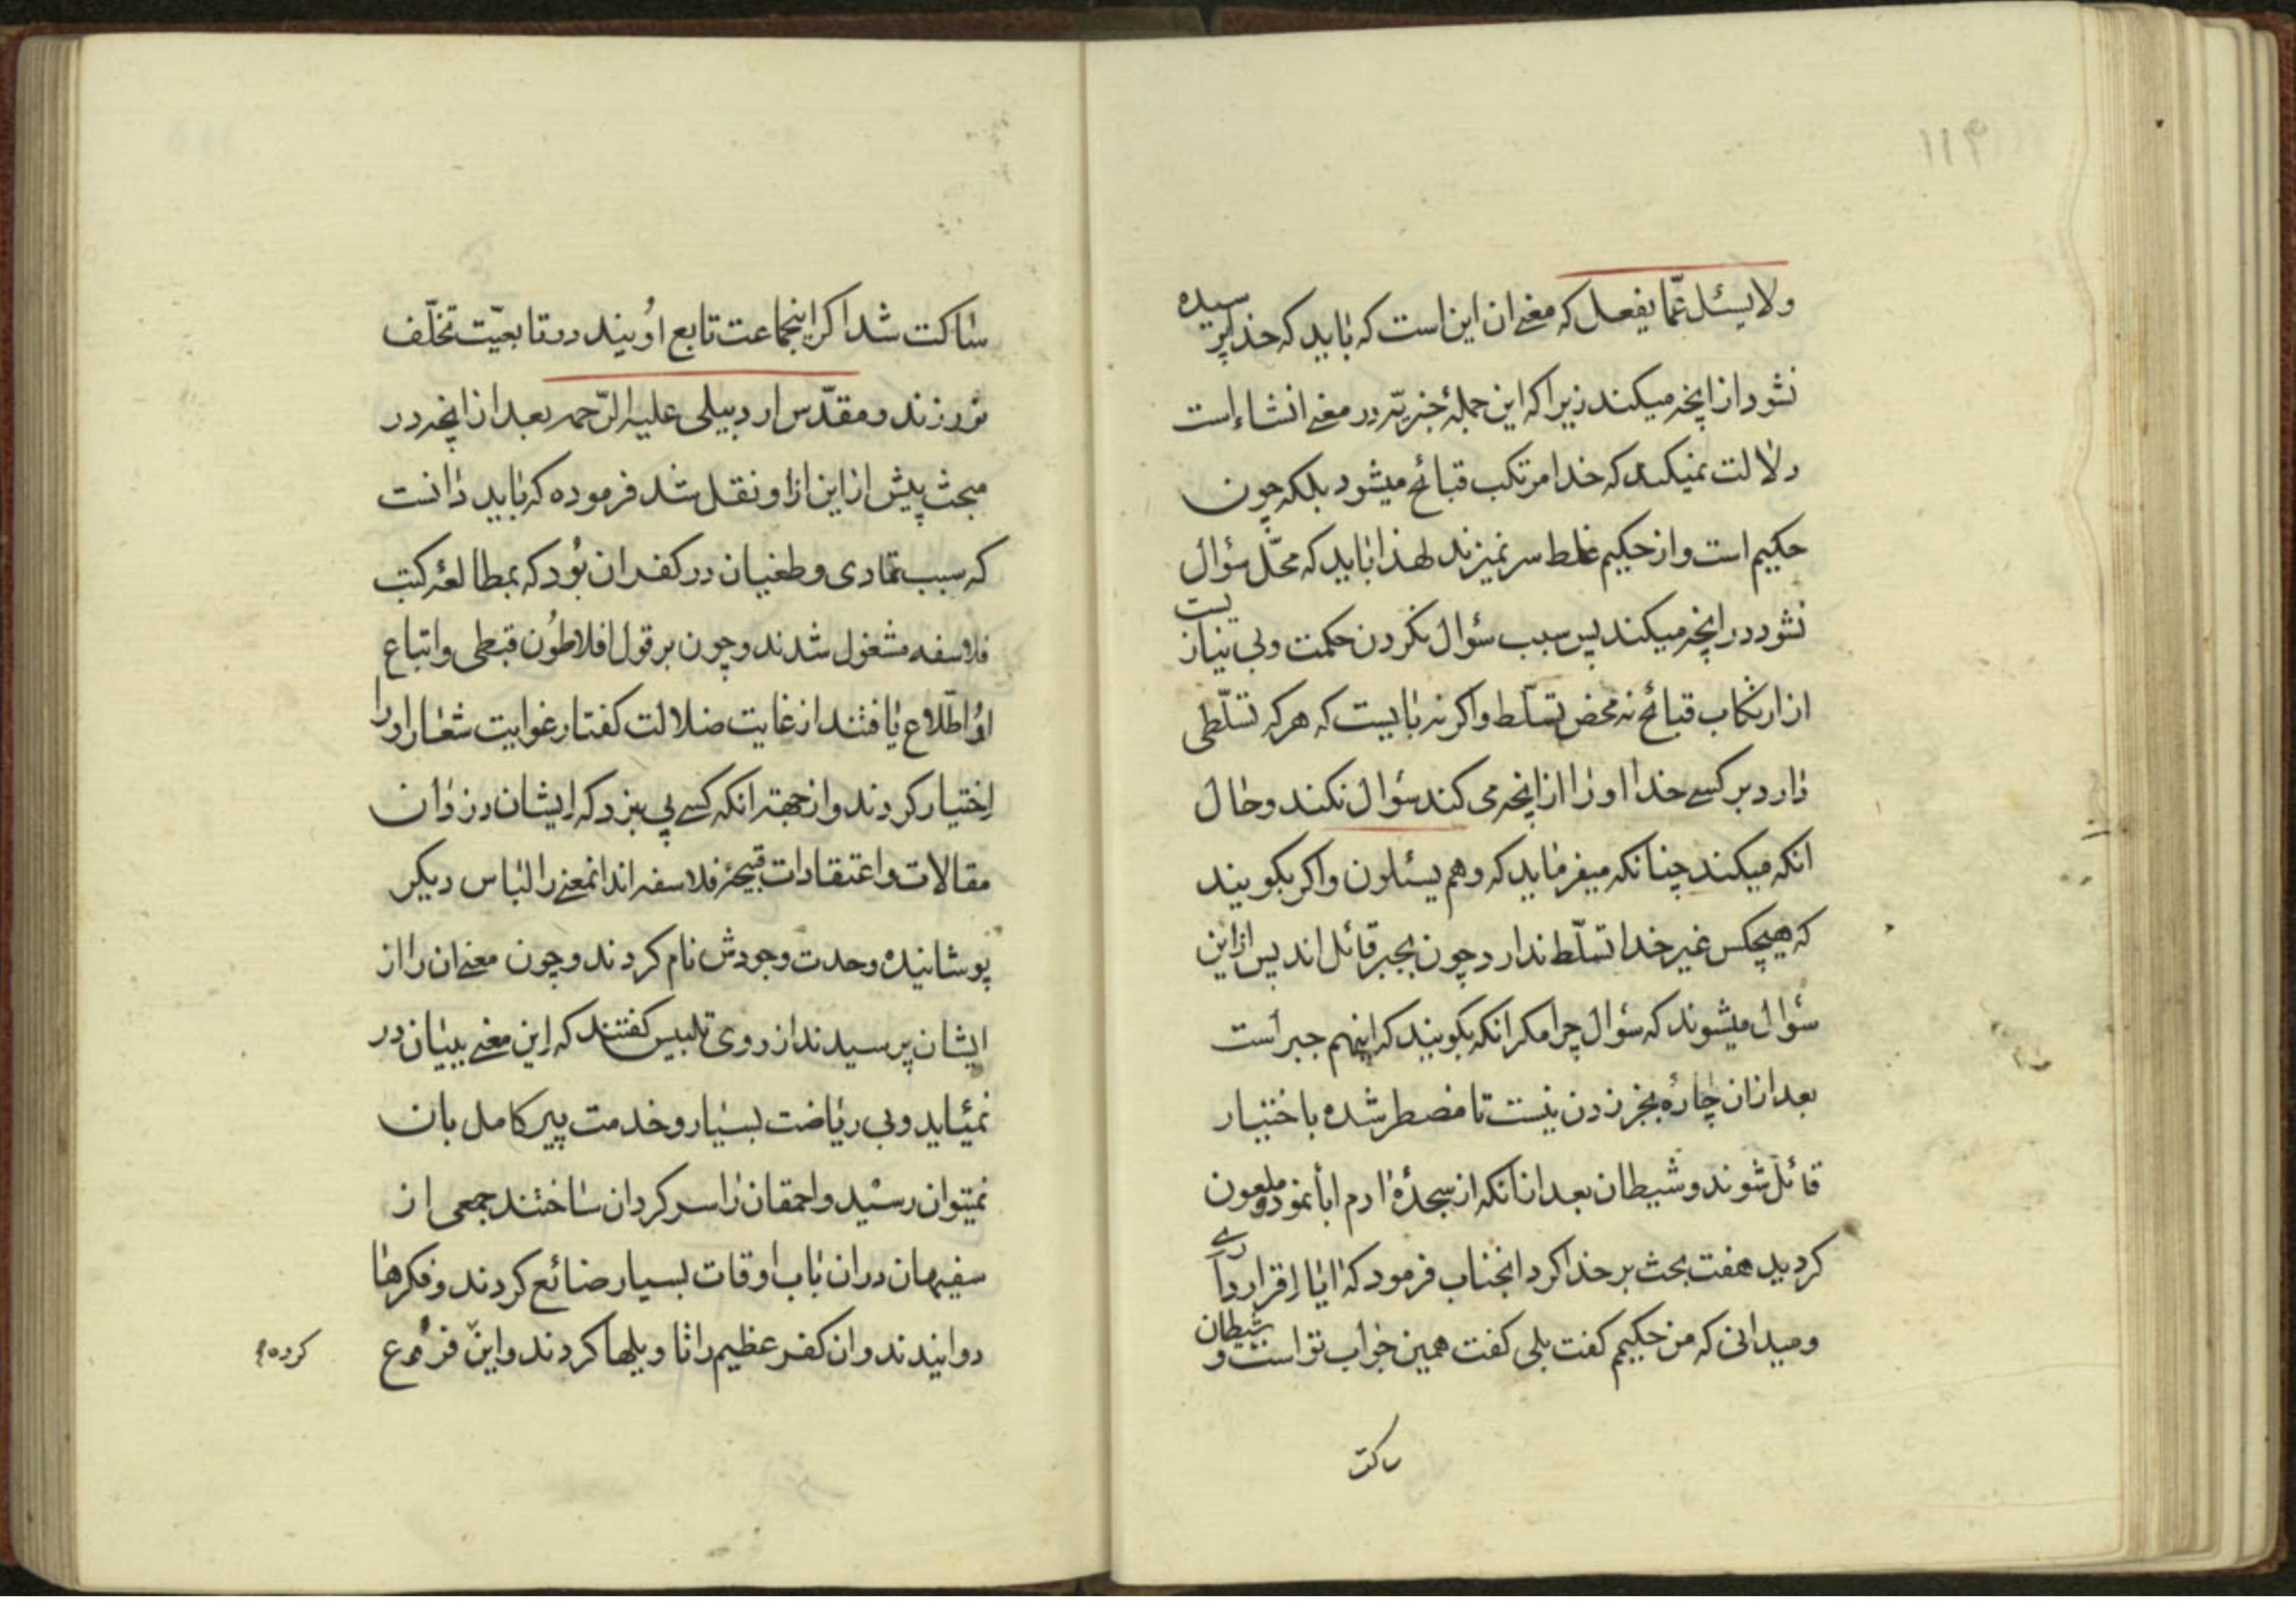 ۱۱۴
ولا یسئل عمّا یفعل که معنی ان این است که باید که خدا پرسیده
نشود از انچه میکند زیرا که این جملهٔ خبریّه در معنی انشاء است
دلالت نمیکند که خدا مرتکب قبائح میشود بلکه چون
حکیم است و از حکیم غلط سر نمیزند لهذا باید که محلّ سؤال
نشود در انچه میکند پس سبب سؤال نکردن حکمت و بی نیازیست
از ارتکاب قبائح نه محض تسلّط و اکر نه بایست که هر که تسلّطی
دارد بر کسی خدا او را از انچه می کند سؤال نکند و حال
انکه میکند چنانکه میفرماید که وهم یسئلون و اکر بکویند
که هیچکس غیر خدا تسلّط ندارد چون بجبر قائل اند پس از این
سؤال میشوند که سؤال چرا مکر انکه بکویند که اینهم جبر است
بعد از ان چارهٔ بجز زدن نیست تا مضطر شده باختیار
قائل شوند و شیطان بعد از انکه از سجدهٔ ادم ابا نمود و ملعون
کردید هفت بحث بر خدا کرد انجناب فرمود که ایا اقرار داری
و میدانی که من حکیم کفت بلی کفت همین جواب تو است و شیطان
ساکت
ساکت شد اکر اینجماعت تابع اویند در تابعیّت تخلّف
نورزند و مقدّس اردبیلی علیه الرّحمه بعد از انچه در
مبحث پیش از این از او نقل شد فرموده که باید دانست
که سبب تمادی و طغیان در کفر ان بود که بمطالعهٔ کتب
فلاسفه مشغول شدند و چون بر قول افلاطون قبطی و اتباع
او اطّلاع یافتند از غایت ضلالت کفتار غوایت شعار او را
اختیار کردند و از جهته انکه کسی پی نبرد که ایشان دزدان
مقالات و اعتقادات قبیحهٔ فلاسفه اند انمعنی را لباس دیکر
پوشانیده وحدت وجودش نام کردند و چون معنی ان را از
ایشان پرسیدند از روی تلبیس کفتند که این معنی ببیان در
نمیٔاید و بی ریاضت بسیار و خدمت پیر کامل بان
نمیتوان رسید و احمقان را سر کردان ساختند جمعی از
سفیهان در ان باب اوقات بسیار ضائع کردند و فکرها
دوانیدند و ان کفر عظیم را تاویلها کردند و این فروع
کرده